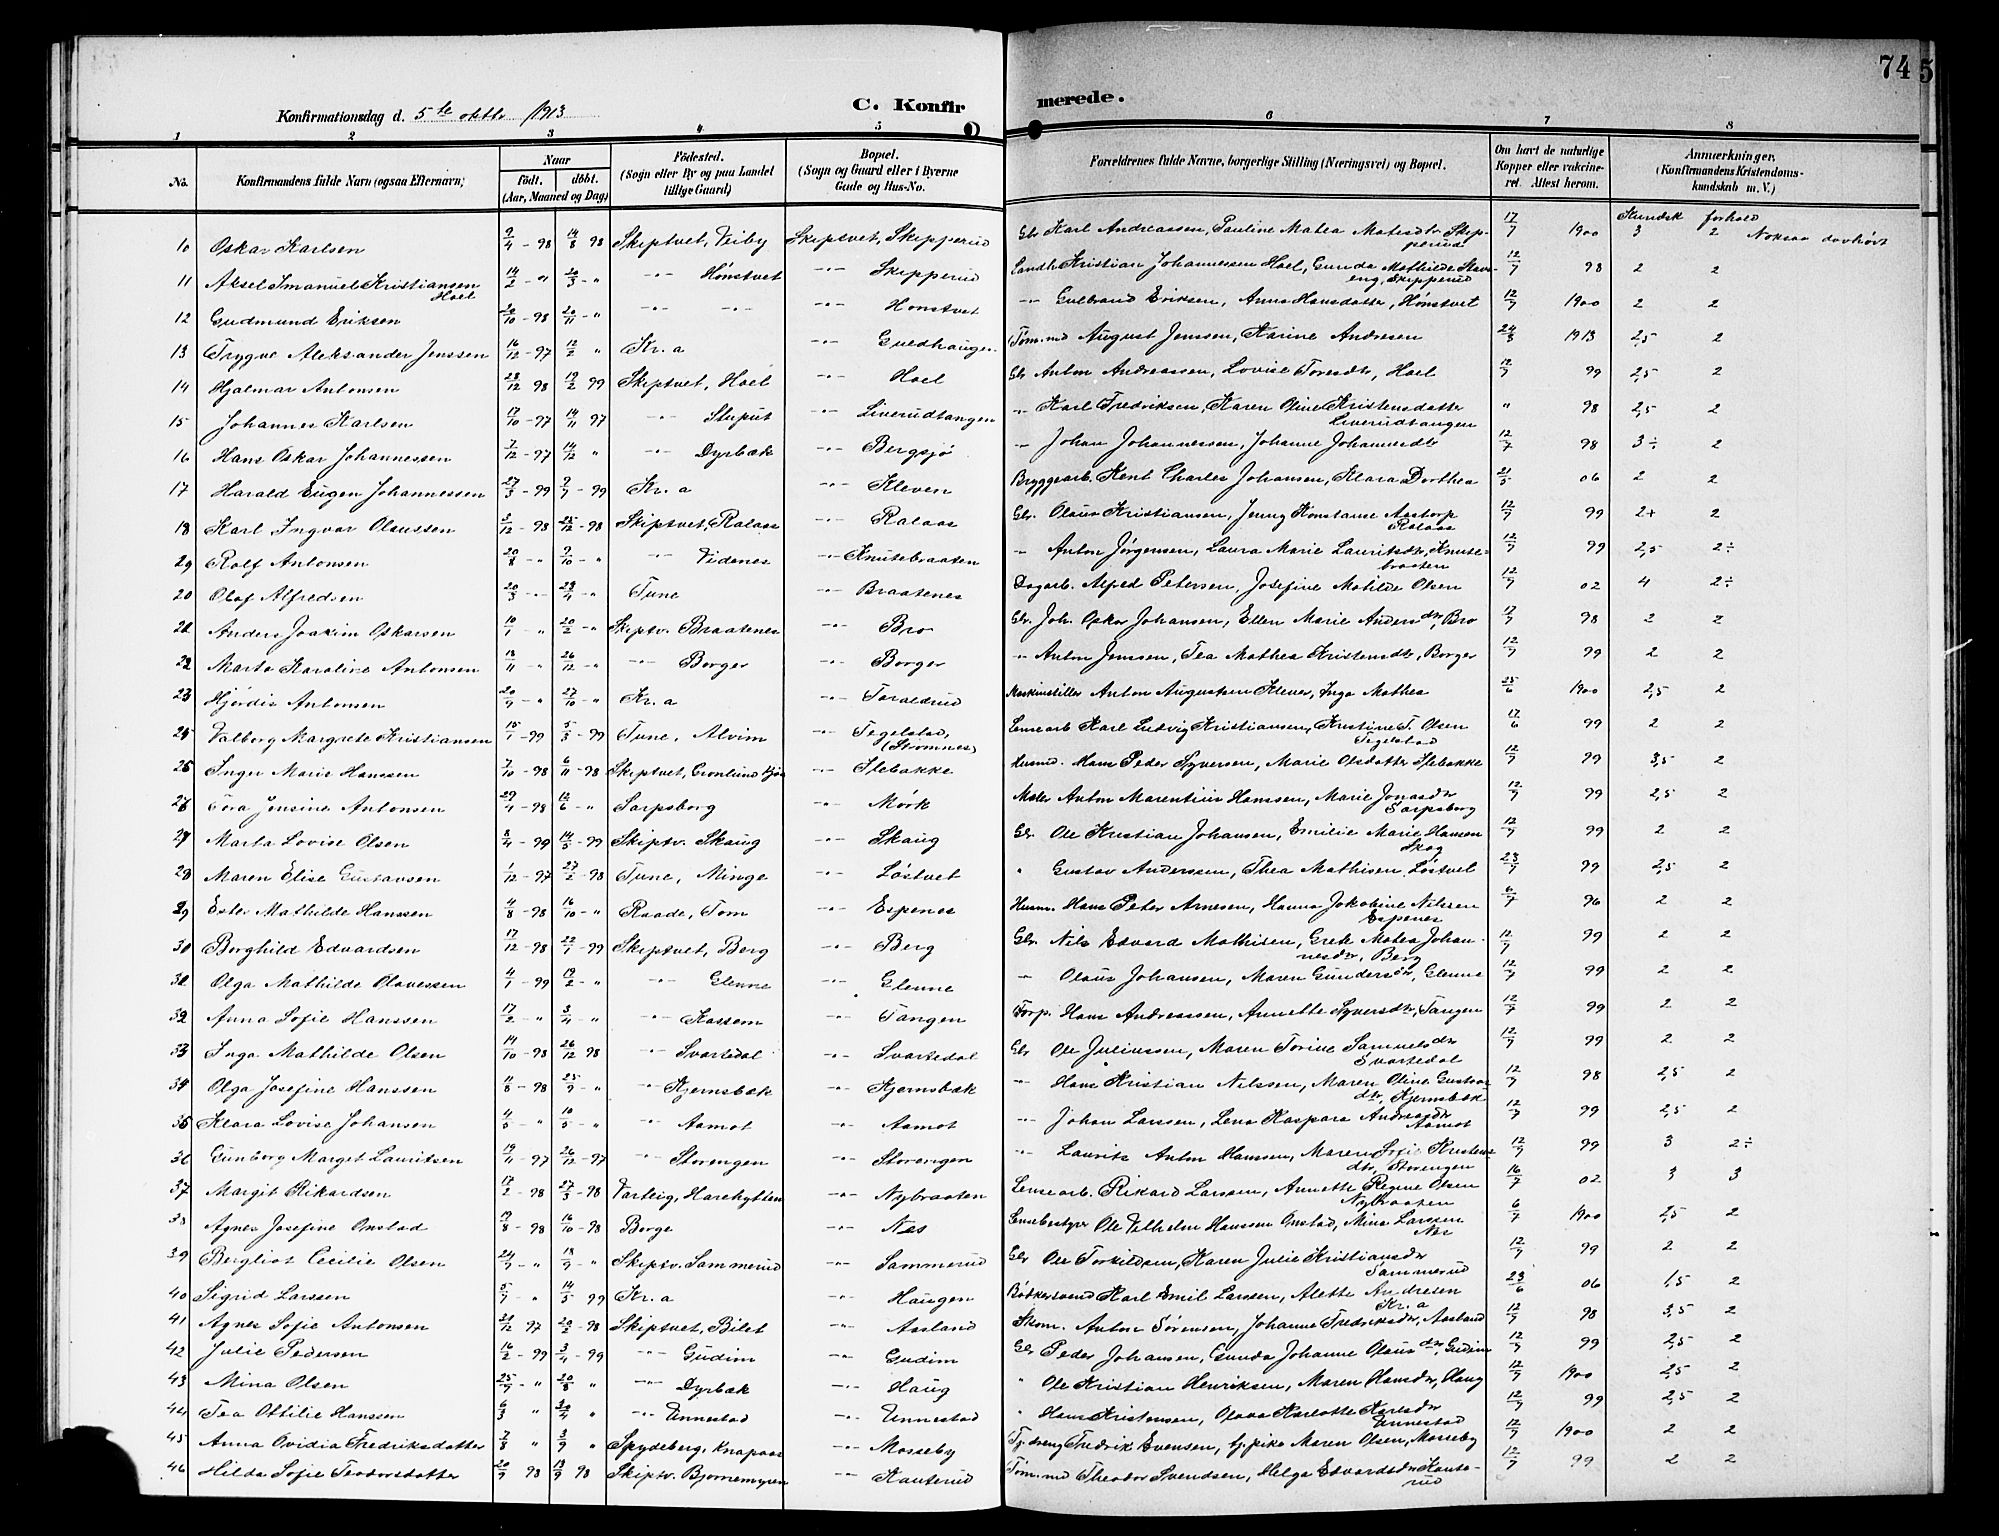 74
5
Konfirmationsdag d. 5te oktbr 1913
C. Konfirmerede.
1 2 3 4 5 6 7 8
No. Konfirmandens fulde Navn (ogsaa Efternavn) Naar født. døbt. (Aar, Maaned og Dag) Fødested. (Sogn eller By og paa Landet tillige Gaard) Bopæl. (Sogn og Gaard eller i Byerne Gade og Hus-No. Forældrenes fulde Navne, borgerlige Stilling (Næringsvei) og Bopæl. Om havt de naturlige Kopper eller vakcineret. Attest herom. Anmærkninger. (Konfirmandens Kristendomskundskab m. V.)
Kundsk forhold
10 Oskar Karlsen 9/4 - 98 14/8 98 Skiptvet, Veiby Skiptvet, Skipperud Gbr Karl Andreassen, Pauline Matea Matisdtr Skipperud 17/7 1900 3 2
11 Aksel Imanuel Kristiansen Hoel 14/2 - " 20/3 - " -"- Hønstvet -"- Skipperud Landh. Kristian Johannessen Hoel, Gunda Mathilde Skipperud 12/7 98 2 2
12 Gudmund Eriksen 10 - 98 20/11 - " -"- -"- -"- Hønstvet -"- Gulbrand Eriksen, Anna Hansdatter, Hønstvet 12/7 1900 2 2
13 Trygve Aleksander Jenssen 16/12 - 97 12/2 " Kr.a -"- Guldhaugen Tøm.md August Jenssen, Karine Andresen 24/3 1913 2,5 2
14 Hjalmar Antonsen 28/12 98 19/2 99 Skiptvet, Hoel -"- Hoel Gbr Anton Andreassen, Lovise Toresdtr, Hoel 12/7 99 2,5 2
15 Johannes Karlsen 17/10 - 97 14/11 97 -"- Stuput -"- Liverudtangen -"- Karl Fredriksen, Karen Oline Kristensdatter Liverudtangen " 98 2,5 2
16 Hans Oskar Johannessen 7/12 - 97 14/12 " -"- Dyrbæk -"- Bergsjø -"- Johan Johannessen, Johanne Johannesdtr 12/7 98 3÷ 2
17 Harald Eugen Johannessen 27/3 - 99 9/7 - 99 Kr.a -"- Kleven Bryggearb. Kent Charles Johansen, Klara Dorthea 21/5 06 2 2
18 Karl Ingvar Olaussen 3/12 - 98 25/12 - 98 Skiptvet, Ralaas -"- Ralaas Gbr. Olaus Kristiansen, Jenny Konstanse Aastorp Ralaas 12/7 99 2+ 2
29 Rolf Antonsen 20/8 - " 9/10 - " -"- Videnes -"- Knutebraaten -"- Anton Jørgensen, Laura Marie Lauritsdtr, Knutebraaten 12/7 99 2,5 2÷
20 Olaf Alfredsen 20/3 -"- 24/4 - " Tune -"- Braatenes Dagarb. Alfred Petersen, Josefine Matilde Olsen 12/7 02 4 2÷
21 Anders Joakim Oskarsen 10/1 " 20/2 - " Skiptv. Braatenes -"- Bro Gbr. Joh. Oskar Johansen, Ellen Marie Andersdtr, Bro 12/7 98 2 2
22 Marta Karoline Antonsen 18/11 " 26/12 " -"- Borger -"- Borger -"- Anton Jenssen, Tea Mathea Kristensdtr, Borger 12/7 99 2 2
23 Hjørdis Antonsen 20/9 - " 27/10 - " Kr.a -"- Toraldrud Maskinstiller Anton Augustsen Klever, Inga Mathea 25/6 1900 2,5 2
Valborg Margrete Kristiansen 15/1 - 99 5/3 - 99 Tune, Alvim -"- Tegelstad, (Strømnes) Lensearb Karl Ludvig Kristiansen, Kristine T. Olsen Tegelstad 17/6 99 2 2
Inger Marie Hanssen 7/10 - 98 6/11 - 98 Skiptvet, Grønlund -"- Slebakke Husmd. Hans Peder Syversen, Marie Olsdatter Slebakke 12/7 99 3,5 2
Tora Jensine Antonsen 29/4 - 98 12/6 - " Sarpsborg -"- Mørk Maler Anton Marentius Hanssen, Marie Jonasdtr Sarpsborg 12/7 99 2,5 2
27 Marta Lovise Olsen 8/4 - 99 14/5 - 99 Skiptv. Skaug -"- Skaug Gbr. Ole Kristian Johansen, Emilie Marie Hansen Skog 12/7 99 2 2
28 Maren Elise Gustavsen 1/12 - 97 27/2 - 98 Tune, Minge -"- Løstvet " Gustav Anderssen, Thea Mathisen Løstvet 23/7 99 2,5 2
29 Ester Mathilde Hanssen 4/8 - 98 16/10 - " Raade, Tom -"- Espenes Husm. Hans Peter Arnesen, Hanna Jakobine Nilssen Espenes 6/7 96 2 2
30 Borghild Edvardsen 17/12 - 98 22/1 - 99 Skiptvet, Berg -"- Berg Gbr. Nils Edvard Mathisen, Grete Matea Johannesdtr, Berg 12/7 99 2 2
31 Olga Mathilde Olavessen 4/1 - 99 19/2 - " -"- Glenne -"- Glenne -"- Olaus Johansen, Maren Gundersdtr, Glenne 12/7 99 2 2
32 Anna Sofie Hanssen 17/2 - " 3/4 - " -"- Kassom -"- Tangen Torp. Hans Andreassen, Annette Syversdtr, Tangen 12/7 99 2 2
33 Inga Mathilde Olsen 14/10 - 98 26/12 98 -"- Svartedal -"- Svartedal Gbr Ole Juliussen, Maren Torine Samuelsdtr Svartedal 12/7 99 2 2
34 Olga Josefine Hanssen 11/8 - 98 25/9 - " -"- Kjernsbæk -"- Kjernsbæk -"- Hans Kristian Nilssen, Maren Oline Gustavsdtr, Kjernsbæk 12/7 98 2,5 2
35 Klara Lovise Johansen 4/5 - " 10/5 - " -"- Aamot -"- Aamot -"- Johan Larssen, Lena Kaspara Andreasdtr Aamot 12/7 99 2,5 2
36 Gunborg Marget Lauritsen 19/11 - 97 26/12 - 97 -"- Storengen -"- Storengen -"- Laurits Anton Hanssen, Maren Sofie Kristensdtr, Storengen 12/7 99 3 2÷
37 Margit Rikardsen 17/2 - 98 27/3 - 98 Varteig, Harehytten -"- Nybraaten Lensearb. Rikard Larssen, Annette Regine Olsen Nybraaten 16/7 02 3 3
38 Agnes Josefine Onstad 19/8 - 98 16/10 - 98 Borge -"- Nes Lensebestyrer Ole Vilhelm Hanssen Onstad, Mina Larssen Nes 6/7 1900 2,5 2
39 Bergliot Cecilie Olsen 24/7 - " 18/9 - " Skiptv. Sammerud -"- Sammerud Gbr Ole Torkildsen, Karen Julie Kristiansdtr Sammerud 12/7 99 2 2
40 Sigrid Larssen 5/7 - " 14/5 99 Kr.a -"- Haugen Bødkersvend Karl Emil Larssen, Alette Andresen Kr.a 23/6 06 1,5 2
41 Agnes Sofie Antonsen 21/12 97 20/2 - 98 Skiptvet, Bilet -"- Aasland Skom. Anton Sørensen, Johanne Fredriksdtr, Aasland 12/7 98 3,5 2
42 Julie Pedersen 16/2 - 99 3/4 - 99 -"- Gudim -"- Gudim Gbr Peder Johansen, Gunda Johanne Olausdtr, Gudim 12/7 99 2,5 2
43 Mina Olsen 25/7 - " 20/8 " -"- Dyrbæk -"- Haug " Ole Kristian Henriksen, Maren Hansdtr, Haug 12/7 1900 2,5 2
44 Tea Ottilie Hanssen 6/3 " 30/4 " -"- Unnestad -"- Unnestad " Hans Kristensen, Olava Karlotte Karlsdtr Unnestad 12/7 99 2,5 2
45 Anna Ovidia Fredriksdatter 7/8 " 3/9 " Spydeberg, Knapaas -"- Mosseby Tj.dreng Fredrik Evensen, tj.pike Maren Olsen, Mosseby 12/7 1900 2 2
46 Hilda Sofie Teodorsdatter 20/7 98 18/9 98 Skiptv. Bjørnemyren -"- Kauterud Tøm.md Theodor Svendsen, Helga Edvardsdtr Kauterud 12/7 99 2 2